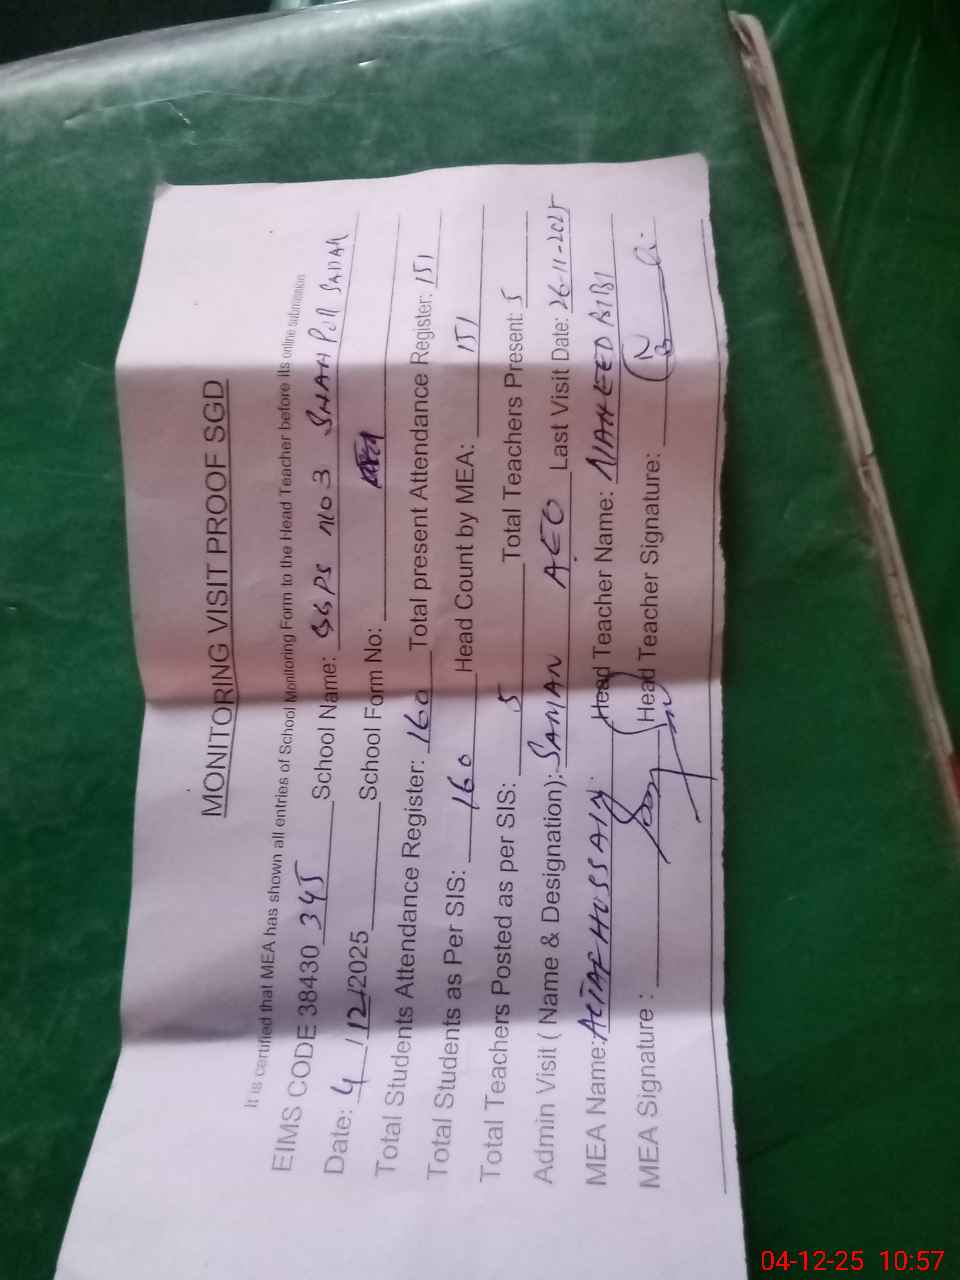 MONITORING VISIT PROOF SGD
It is certified that MEA has shown all entries of School Monitoring Form to the Head Teacher before its online submission
EIMS CODE 38430 345 School Name: GGPS NO 3 SHAH Pur SADAR
Date: 4/12/2025 School Form No:
Total Students Attendance Register: 160 Total present Attendance Register: 151
Total Students as Per SIS: 160 Head Count by MEA: 151
Total Teachers Posted as per SIS: 5 Total Teachers Present: 5
Admin Visit ( Name & Designation): SAMAN A.EO Last Visit Date: 26-11-2025
MEA Name: ALTAF HUSSAIN Head Teacher Name: NAHEED BIBI
MEA Signature : Head Teacher Signature:
04-12-25 10:57